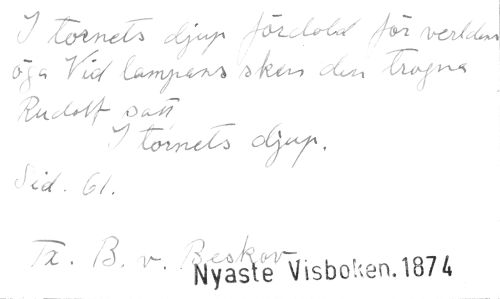 I tornets djup fördold för verldens
öga Vid lampans sken den trogna
Rudolf satt
I tornets djup.
Sid. 61.
Tx. B. v. Beskov
Nyaste Visboken. 1874